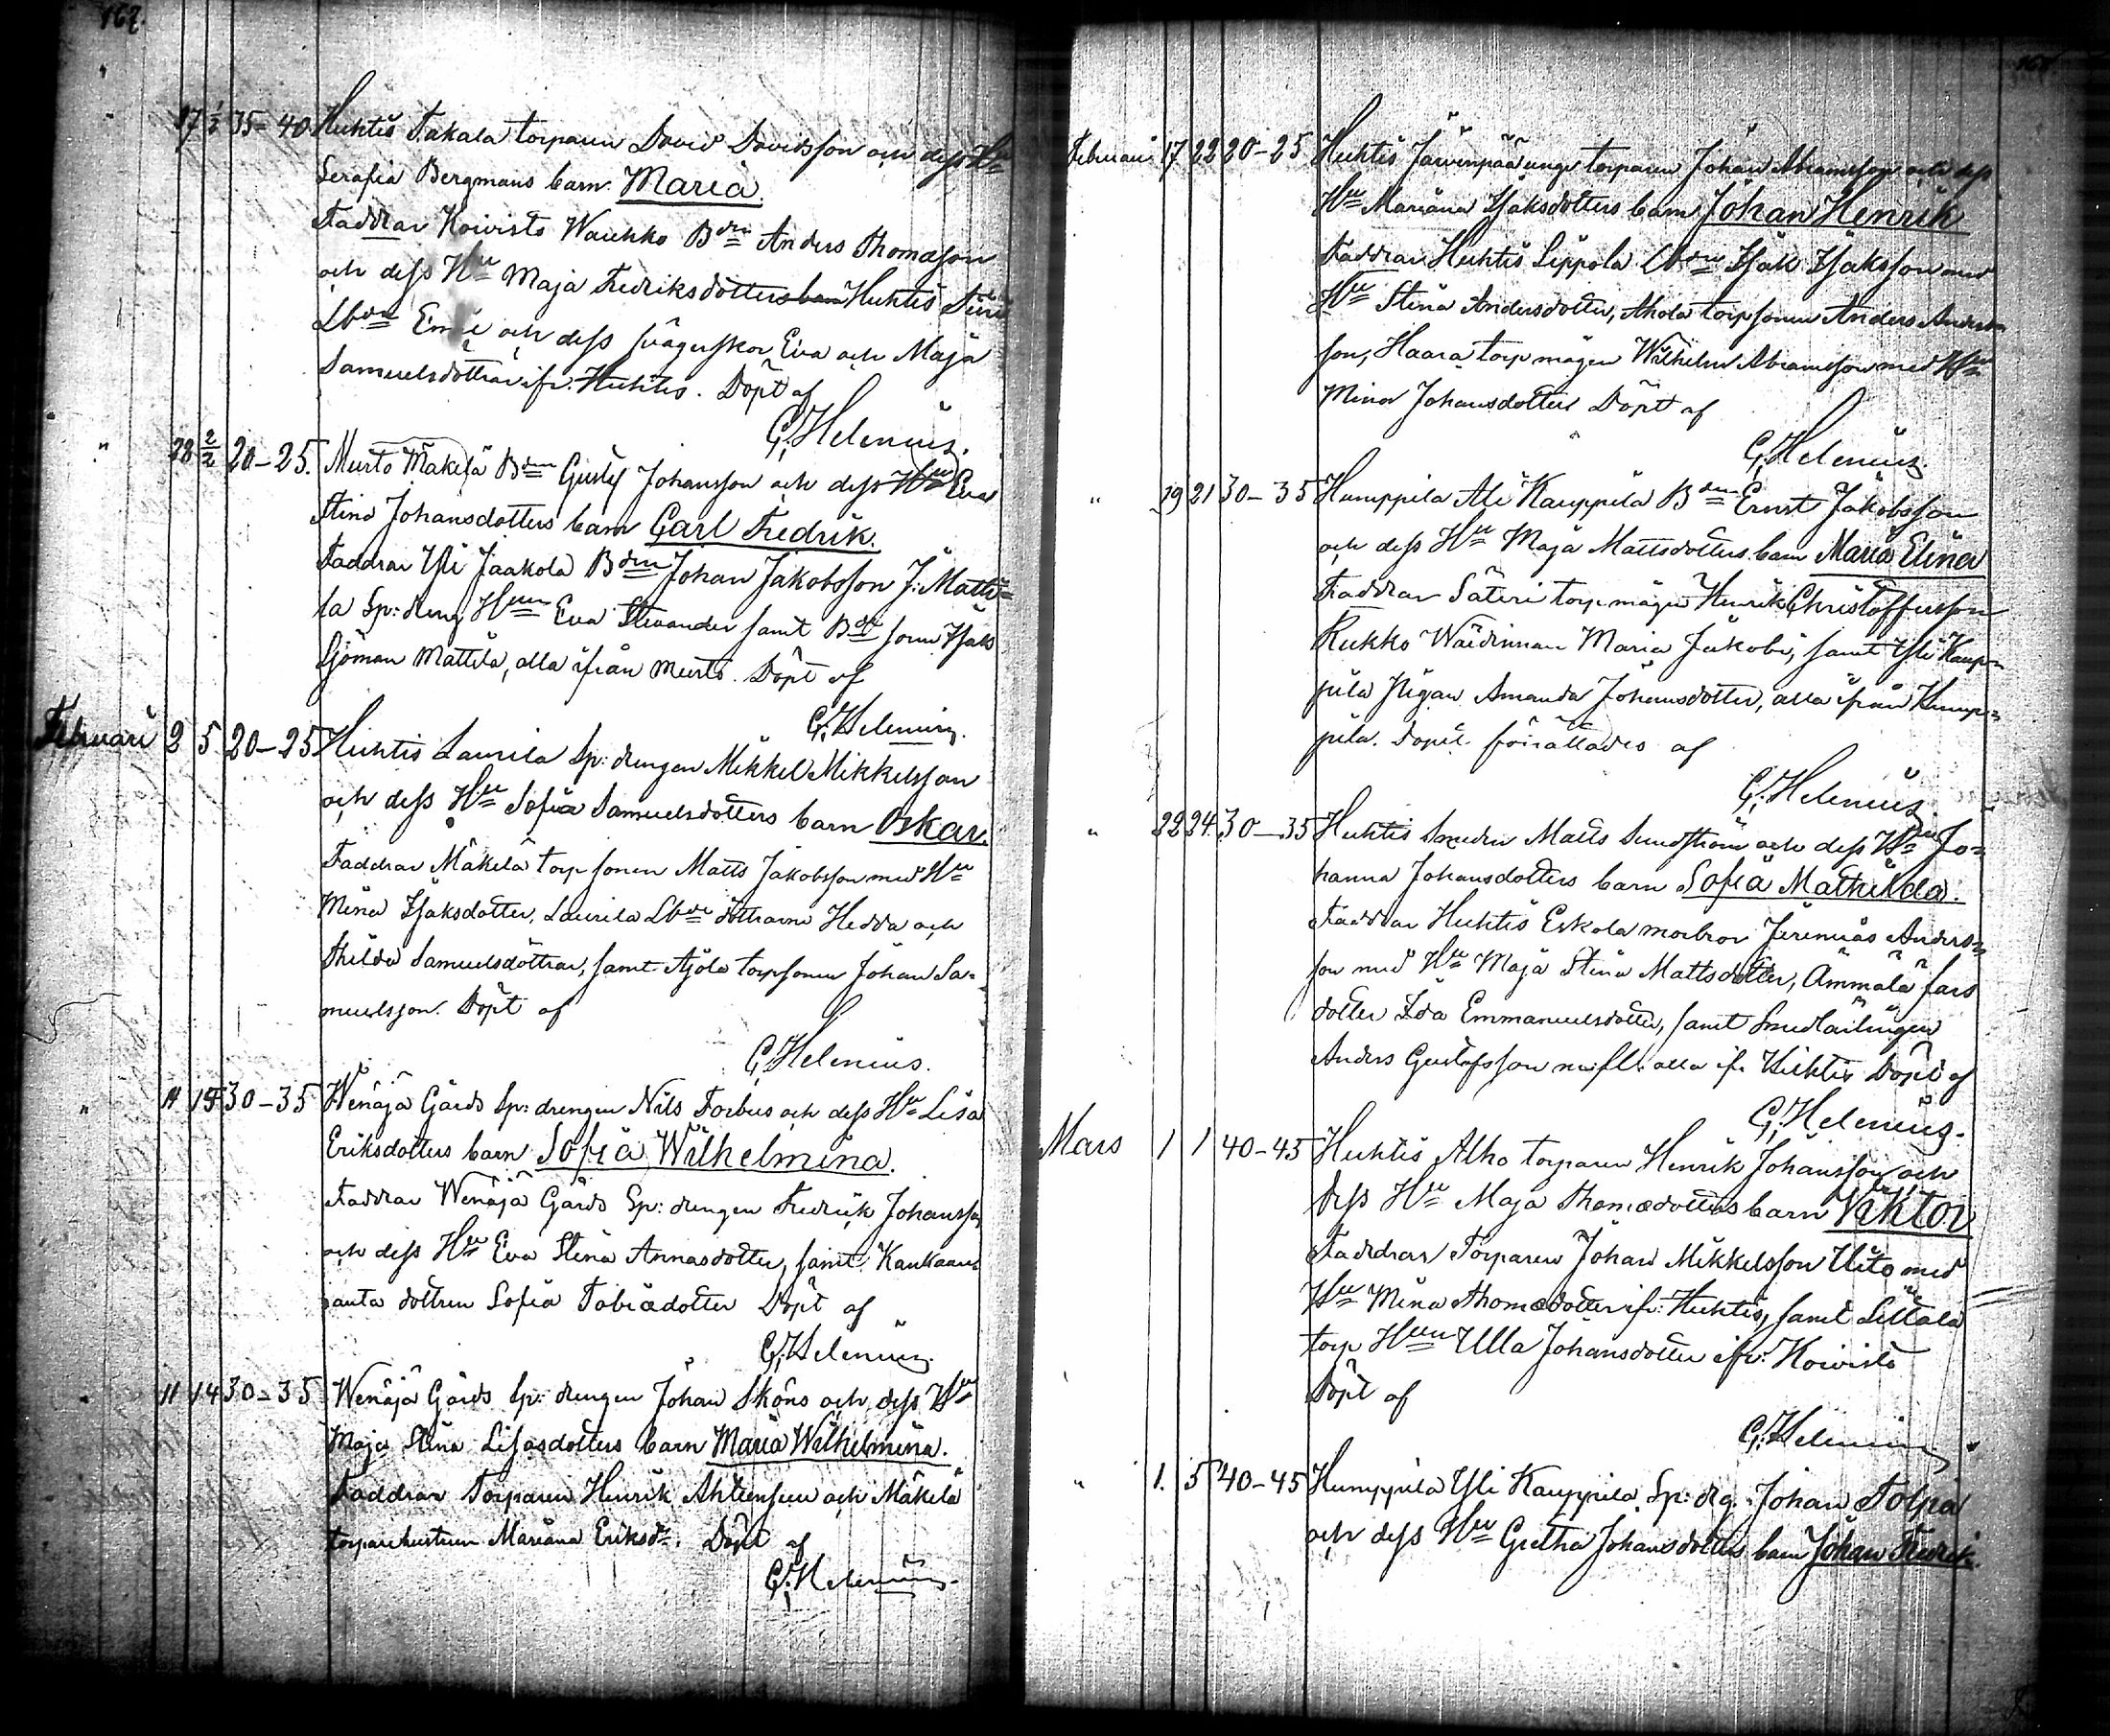 167.
17 1/2 35-40 Huhtis Takala torparen David Davidsson och dess Hu
Serafia Bergmans barn Maria.
Faddrar Koivisto Wauhko Bdn Anders Thomæson
och dess Hu Maja Fredriksdotters barn Huhtis
Lbdn och dess svägerskor Eva och Maja
Samuelsdöttrar ifr. Huhtis. Döpt af
G. Helenius.
" 28 2/2 20-25. Murto Mäkelä Bdn Gustf Johansson och dess Hu Eva
Stina Johansdotters barn Carl Fredrik.
Faddrar Yli Jaakola Bdn Johan Jakobsson J. Matti-
la Sp: dreng Hun Eva Stevander samt Bde sonen Isak
Sjöman Mattila, alla ifrån Murto. Döpt af
G. Helenius.
Februari 2 5 20-25 Huhtis Laurila Sp: drengen Mikkel Mikkelsson
och dess Hu Sofia Samuelsdotters barn Oskar.
Faddrar Mäkelä torp sonen Matts Jakobsson med Hu
Mina Isaksdotter, Laurila Lbde döttrarne Hedda och
Thilda Samuelsdöttrar, samt Ajola torpsonen Johan Sa-
muelsson. Döpt af
G. Helenius.
" 11 15 30-35 Wenäjä Gårds Sp: drengen Nils Forbus och dess Hu Lisa
Eriksdotters barn Sofia Wilhelmina.
Faddrar Wenäjä Gårds Sp: drengen Fredrik Johansson
och dess Hu Eva Stina Annasdotter, samt Kankaan
panta dottren Sofia Tobiædotter Döpt af
G. Helenius.
" 11 14 30-35 Wenäjä Gårds Sp: drengen Johan Sköns och dess Hu
Maja Stina Lisasdotters barn Maria Wilhelmina.
Faddrar Torparen Henrik Ahlensuu och Mäkelä
torparehustrun Mariana Eriksdr. Döpt af
G. Helenius.
Februari 17 22 20-25 Huhtis Järvenpää unge torparen Johan Abramsson och dess
Hu Mariana Isaksdotters barn Johan Henrik
Faddrar Huhtis Seppola Lbdn Isak Isaksson med
Hu Stina Andersdotter, Ahola torpsonen Anders Anders-
son, Haara torp mågen Wilhelm Abramsson med Hu
Mina Johansdotter Döpt af
G. Helenius.
" 19 21 30-35 Humppila Ali Kauppila Bdn Ernst Jakobsson
och dess Hu Maja Mattsdotters barn Maria Elina
Faddrar Säteri torp mågen Henrik Christoffersson
Kukko Wärdinnan Maria Jakobi, samt Yli Kaup-
pila Pigan Amanda Johansdotter, alla ifrån Hump-
pila. Dopet förrättades af
G. Helenius
" 22 24 30-35 Huhtis Smeden Matts Sundström och dess Hu Jo-
hanna Johansdotters barn Sofia Mathilda.
Faddrar Huhtis Eskola morbror Jeremias Anders-
son med Hu Maja Stina Mattsdotter, Ämmälä fars
dotter Ida Emmanuelsdotter, samt Smedlärlingen
Anders Gustafsson m. fl. alla if. Huhtis Döpt af
G. Helenius.
Mars 1 1 40-45 Huhtis Alho torparen Henrik Johansson och
dess Hu Maja Thomædotters barn Viktor
Faddrar Torparen Johan Mikkelsson Uito med
Hu Mina Thomædotter ifr: Huhtis, samt Lettala
torp Hun Ulla Johansdotter ifr: Koivisto
Döpt af
G. Helenius
" 1. 5 40-45 Humppila Yli Kauppila Sp: drg. Johan Tolpa
och dess Hu Gretha Johansdotters barn Johan Fredrik.